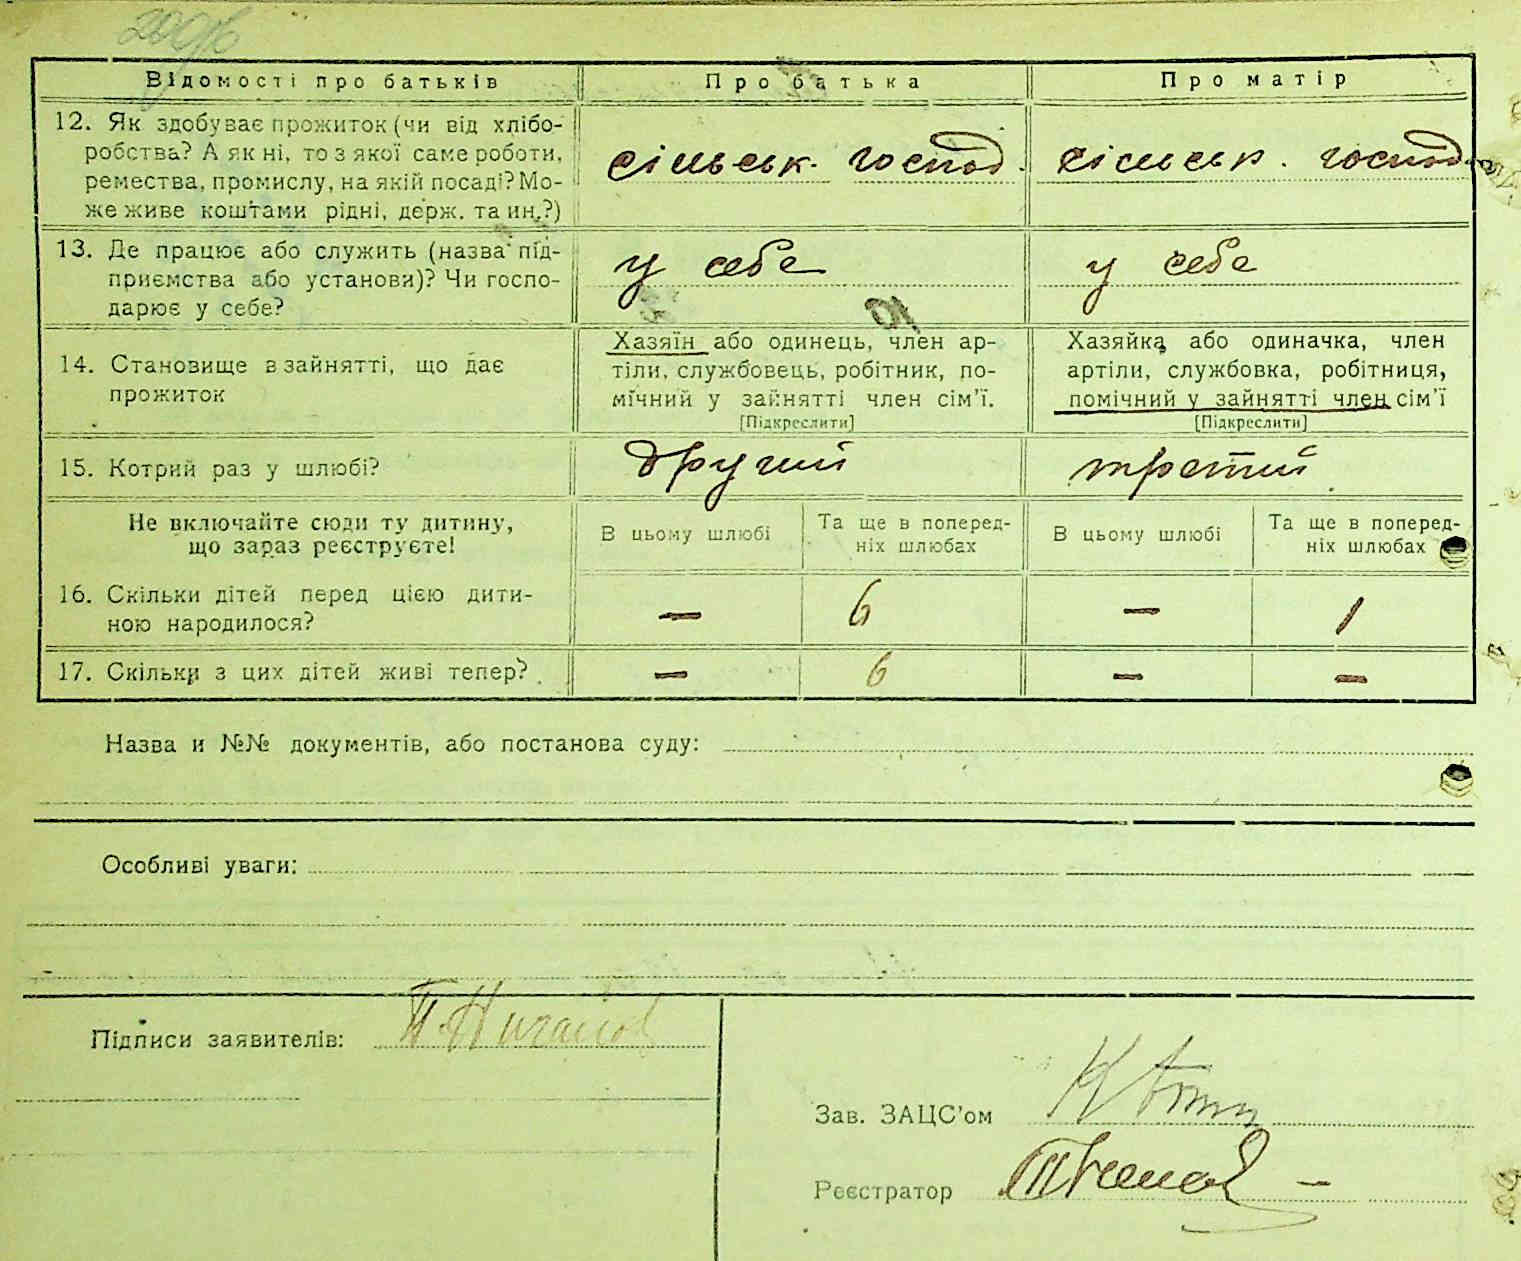 Відомості про батьків
Про батька
Про матір
12. Як здобуває прожиток (чи від хлібо-
робства? А як ні, то з якої саме роботи,
ремества, промислу, на якій посаді? Мо-
же живе коштами рідні, держ. та ин.?)
сільськ. господ.
сільськ. господ.
13. Де працює або служить (назва під-
приємства або установи)? Чи госпо-
дарює у себе?
у себе
у себе
14. Становище в зайнятті, що дає
прожиток
Хазяїн або одинець, член ар-
тіли, службовець, робітник, по-
мічний у зайнятті член сім’ї.
[Підкреслити]
Хазяйка або одиначка, член
артіли, службовка, робітниця,
помічний у зайнятті член сім’ї
[Підкреслити]
15. Котрий раз у шлюбі?
другий
третий
Не включайте сюди ту дитину,
що зараз реєструєте!
В цьому шлюбі
Та ще в поперед-
ніх шлюбах
В цьому шлюбі
Та ще в поперед-
ніх шлюбах
16. Скільки дітей перед цією дити-
ною народилося?
— 6 — 1
17. Скільки з цих дітей живі тепер?
— 6 — —
Назва и №№ документів, або постанова суду:
Особливі уваги:
Підписи заявителів:
Зав. ЗАЦС’ом
Реєстратор